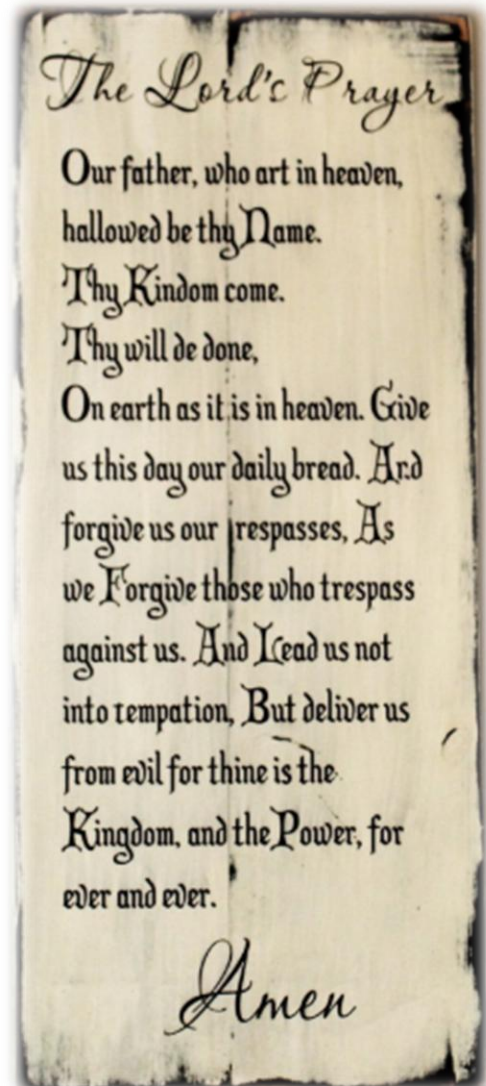 The Lord's Prayer
Our father, who art in heaven,
hallowed be thy Name.
Thy Kindom come.
Thy will de done,
On earth as it is in heaven. Give
us this day our daily bread. And
forgive us our trespasses, As
we Forgive those who trespass
against us. And Lead us not
into tempation, But deliver us
from evil for thine is the
Kingdom, and the Power, for
ever and ever.
Amen